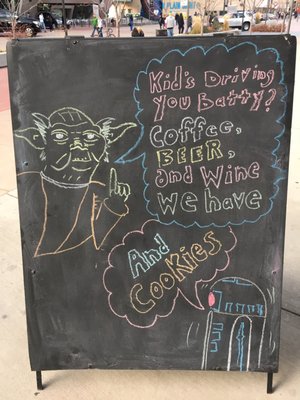 Kid's Driving
You Batty?
Coffee,
BEER,
and Wine
We have
And
Cookies